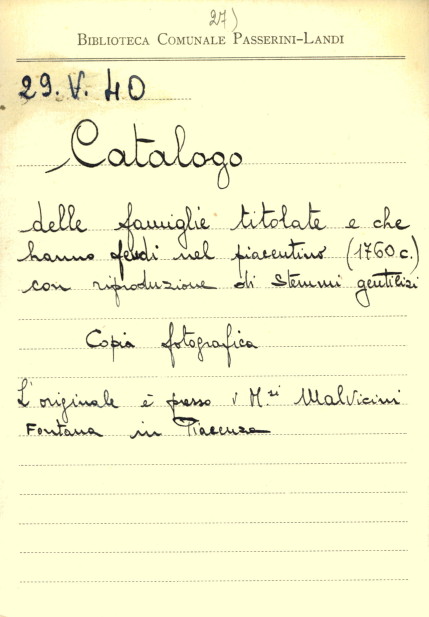 27)
BIBLIOTECA COMUNALE PASSERINI-LANDI
29. V. 40
Catalogo
delle famiglie titolate e che
hanno feudi nel piacentino (1760 c.)
con riproduzione di stemmi gentilizi
Copia fotografica
L'originale è presso i M.si Malvicini
Fontana in Piacenza